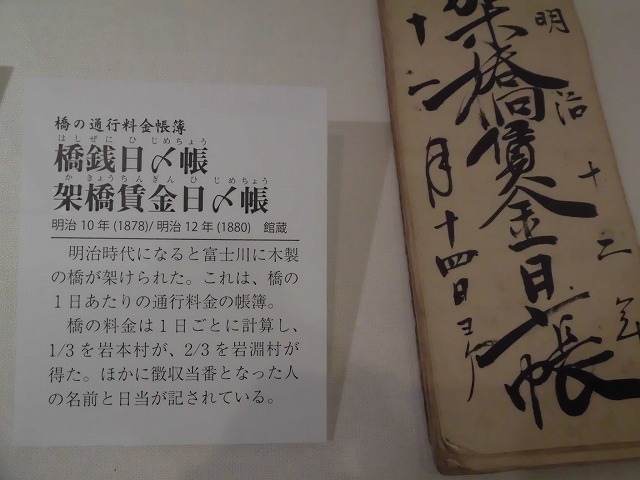 橋の通行料金帳簿
はしぜに ひ じめちょう
橋銭日〆帳
かきょうちんぎん ひ じめちょう
架橋賃金日〆帳
明治 10 年 (1878)/ 明治 12 年 (1880) 館蔵
明治時代になると富士川に木製
の橋が架けられた。これは、橋の
1日あたりの通行料金の帳簿。
橋の料金は1日ごとに計算し、
1/3 を岩本村が、2/3 を岩淵村が
得た。ほかに徴収当番となった人
の名前と日当が記されている。
明治十二年
架橋賃金日〆帳
十二月十四日ヨリ